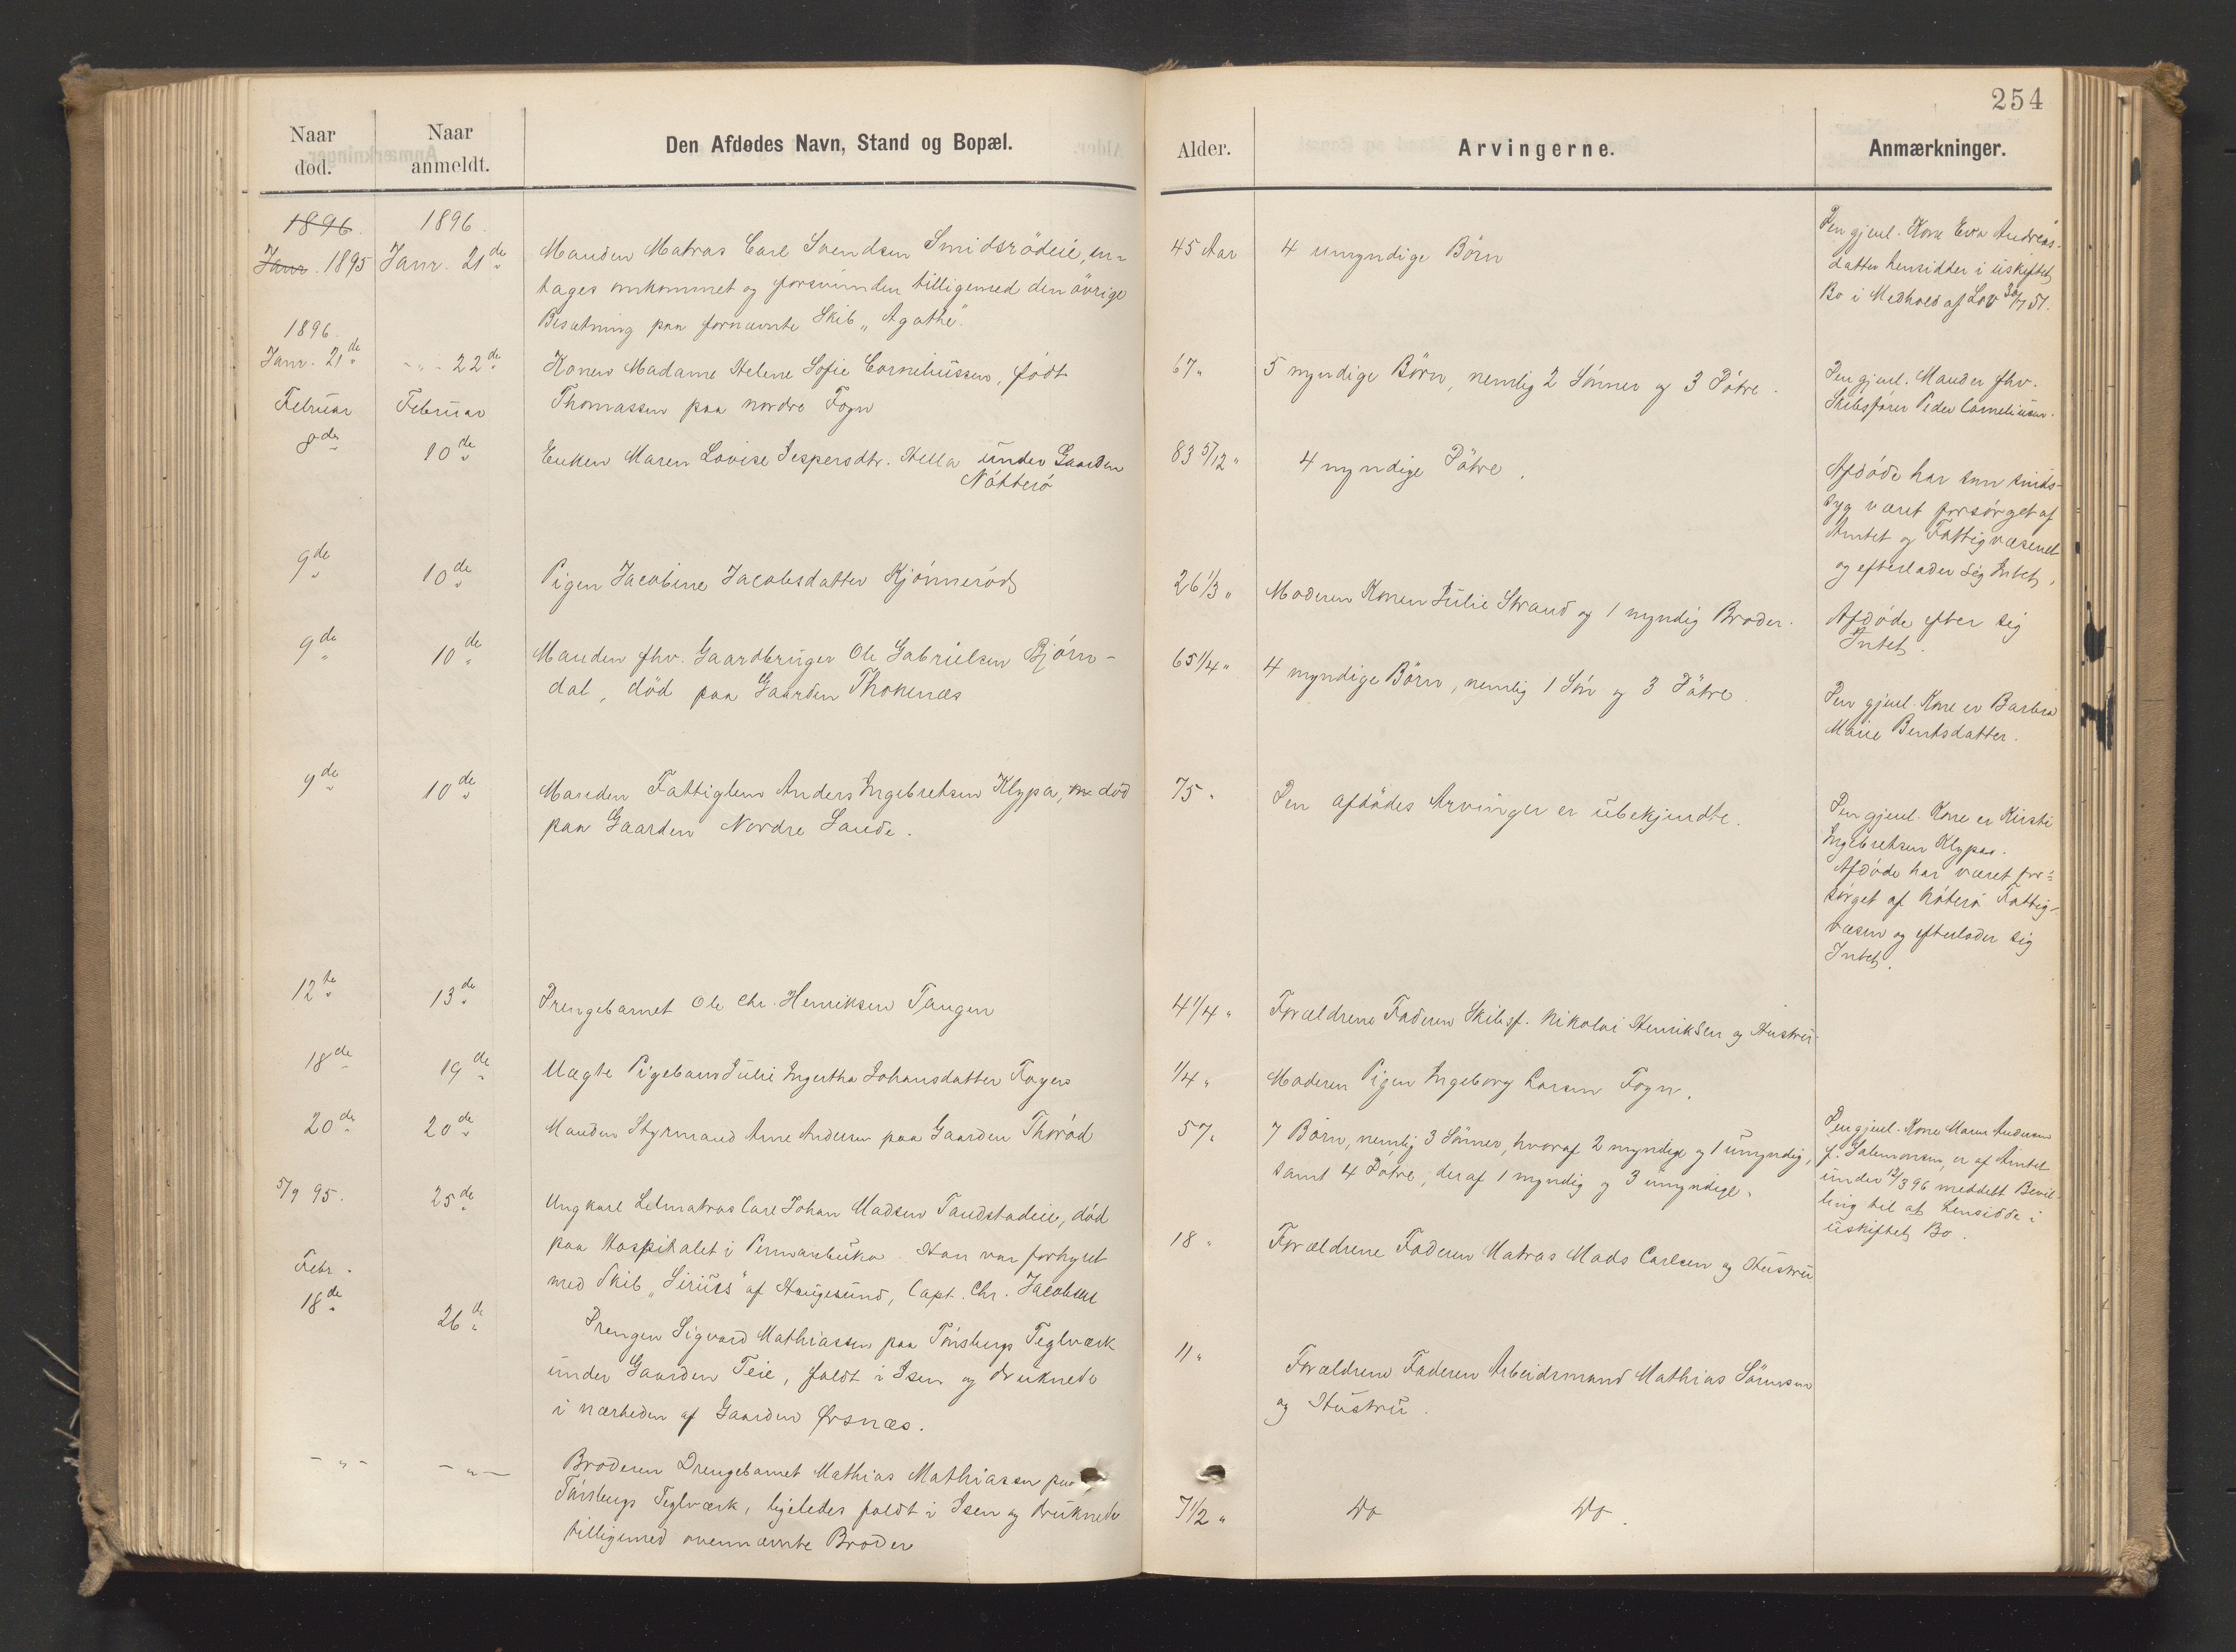 254
Naar
død.
Naar
anmeldt.
Den Afdødes Navn, Stand og Bopæl.
Alder.
Arvingerne.
Anmærkninger.
1896.
Janr. 1895
1896
Janr. 21de
Manden Matros Carl Svendsen Smidsrödeie, an-
tages omkommet og forsvunden tilligemed den övrige
Besætning paa fornævnte Skib "Agathe".
45 Aar
4 umyndige Börn
Den gjenl. Kone Eva Andreas-
datter hensidder i uskiftet
Bo i Medhold af Lov 30/7 51.
1896.
Janr. 21de
-"- 22de
Konen Madame Helene Sofie Corneliussen, födt
Thomassen paa nordre Fogn
67 "
5 myndige Börn, nemlig 2 Sönner og 3 Dötre.
Den gjenl. Mand er fhv.
Skibsförer Peder Corneliussen.
Februar
8de
Februar
10de
Enken Maren Lovise Jespersdtr. Hella under Gaarden
Nötterö
83 5/12 "
4 myndige Dötre.
Afdöde har som sinds-
syg været forsörget af
Amtet og Fattigvæsenet
og efterlader sig Intet.
9de
10de
Pigen Jacobine Jacobsdatter Kjönneröd
26 1/3 "
Moderen Konen Julie Strand og 1 myndig Broder.
Afdöde efter sig
Intet.
9de
10de
Manden fhv. Gaardbruger Ole Gabrielsen Bjönn-
dal, död paa Gaarden Thokenæs
65 1/4 "
4 myndige Börn, nemlig 1 Sön og 3 Dötre.
Den gjenl. Kone er Barbra
Marie Bentsdatter.
9de
10de
Manden Fattiglem Anders Ingebretsen Klypa, död
paa Gaarden Nordre Sande.
75 "
Den afdödes Arvinger er ubekjendte.
Den gjenl. Kone er Kirsti
Ingebretsen Klypa.
Afdöde har været for-
sörget af Nöterö Fattig-
væsen og efterlader sig
Intet.
12te
13de
Drengebarnet Ole Chr. Henriksen Tangen
4 1/4 "
Forældrene Faderen Skibsf. Nikolai Henriksen og Hustru
18de
19de
Uægte Pigebarn Julie Ingertha Johansdatter Fogn
1/4 "
Moderen Pigen Ingeborg Larsen Fogn.
20de
20de
Manden Styrmand Arne Andersen paa Gaarden Thoröd
57 "
7 Börn, nemlig 3 Sönner, hvoraf 2 myndige og 1 umyndig,
samt 4 Dötre, deraf 1 myndig og 3 umyndige.
Den gjenl. Kone Maren Andersen
f. Salomonsen, er af Amtet
under 12/3 96 meddelt Bevil-
ling til at hensidde i
uskiftet Bo.
5/9 95.
25de
Ungkarl Letmatros Carl Johan Madsen Tandstadeie, död
paa Hospitalet i Pernambuko. Han var forhyret
med Skib "Sirius" af Haugesund, Capt. Chr. Jacobsen
18 "
Forældrene Faderen Matros Mads Carlsen og Hustru
Febr.
18de
26de
Drengen Sigvard Mathiassen paa Tönsbergs Teglværk
under Gaarden Teie, faldt i Isen og druknede
i nærheden af Gaarden Örsnæs.
11 "
Forældrene Faderen Arbeidsmand Mathias Sörensen
og Hustru.
- " -
- " -
Broderen Drengebarnet Mathias Mathiassen paa
Tönsbergs Teglværk, ligeledes faldt i Isen og druknede
tilligemed ovennævnte Broder
7 1/2 "
Do
Do.